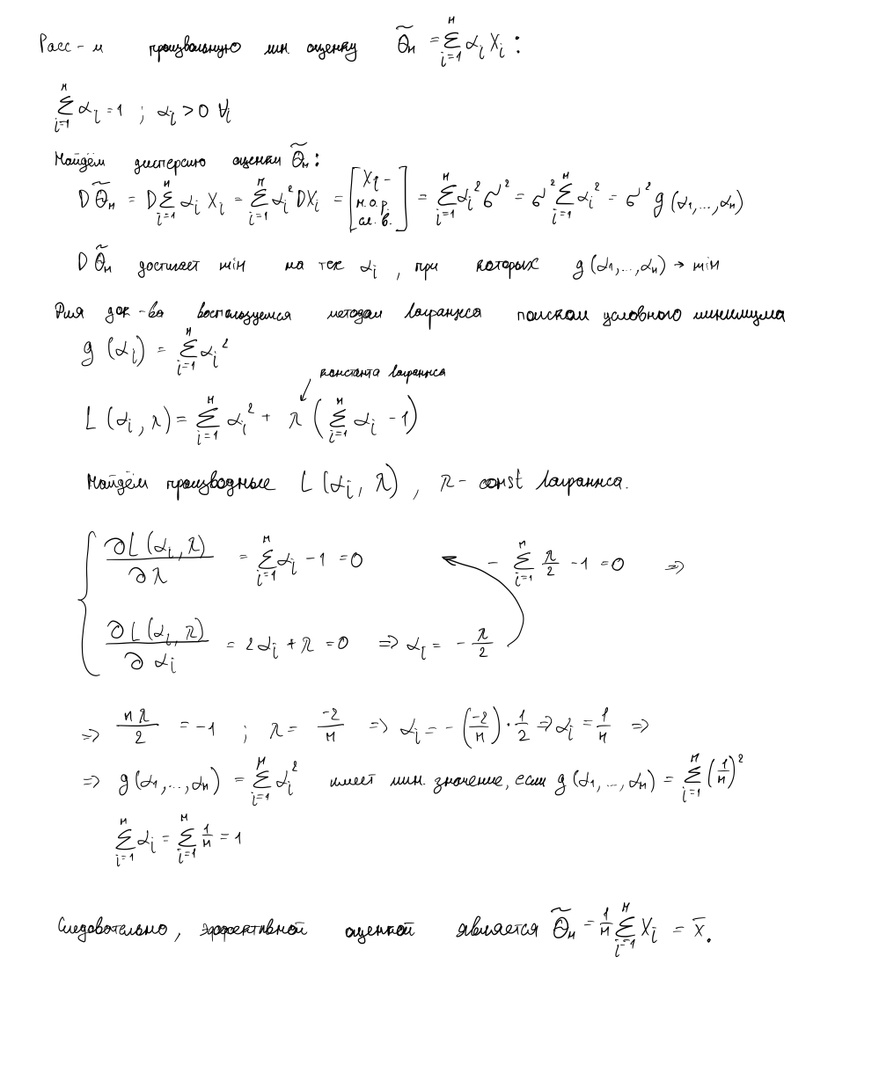 Расс-м произвольную лин. оценку θ̃ₙ = Σᵢ₌₁ⁿ αᵢ Xᵢ :
Σᵢ₌₁ⁿ αᵢ = 1 ; αᵢ > 0 ∀i
Найдём дисперсию оценки θ̃ₙ :
D θ̃ₙ = D Σᵢ₌₁ⁿ αᵢ Xᵢ = Σᵢ₌₁ⁿ αᵢ² DXᵢ = [X₁ - н.о.р. сл. в.] = Σᵢ₌₁ⁿ αᵢ² σ² = σ² Σᵢ₌₁ⁿ αᵢ² = σ² g (α₁,...,αₙ)
D θ̃ₙ достигает min на тех αᵢ , при которых g (α₁,...,αₙ) → min
Для док-ва воспользуемся методом Лагранжа поиском условного минимума
g (αᵢ) = Σᵢ₌₁ⁿ αᵢ²
константа Лагранжа
L (αᵢ, λ) = Σᵢ₌₁ⁿ αᵢ² + λ (Σᵢ₌₁ⁿ αᵢ - 1)
Найдём производные L (αᵢ, λ) , λ - const Лагранжа.
∂L (αᵢ, λ) / ∂λ = Σᵢ₌₁ⁿ αᵢ - 1 = 0 - Σᵢ₌₁ⁿ λ/2 - 1 = 0 ⇒
∂L (αᵢ, λ) / ∂αᵢ = 2αᵢ + λ = 0 ⇒ αᵢ = - λ/2
⇒ nλ/2 = -1 ; λ = -2/n ⇒ αᵢ = - (-2/n) · 1/2 ⇒ αᵢ = 1/n ⇒
⇒ g (α₁,...,αₙ) = Σᵢ₌₁ⁿ αᵢ² имеет мин. значение, если g (α₁, ..., αₙ) = Σᵢ₌₁ⁿ (1/n)²
Σᵢ₌₁ⁿ αᵢ = Σᵢ₌₁ⁿ 1/n = 1
Следовательно, эффективной оценкой является θ̃ₙ = 1/n Σᵢ₌₁ⁿ Xᵢ = x̄.